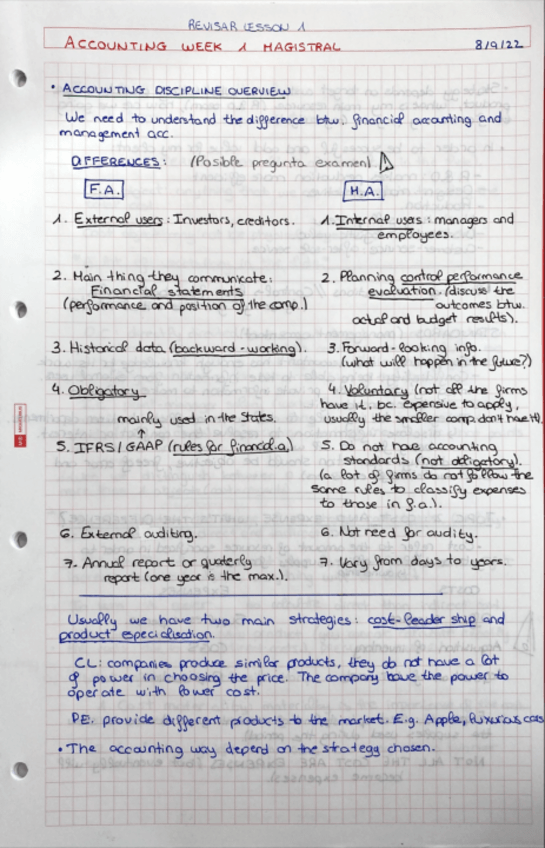 REVISAR LESSON 1
ACCOUNTING WEEK 1 MAGISTRAL 8/9/22
• ACCOUNTING DISCIPLINE OVERVIEW
We need to understand the difference btw. financial accounting and
management acc.
DIFFERENCES: (Posible pregunta examen)
F.A. M.A.
1. External users: Investors, creditors.
1. Internal users: managers and
employees.
2. Main thing they communicate:
Financial statements
(performance and position of the comp.)
2. Planning control performance
evaluation. (discuss the
outcomes btw.
actual and budget results).
3. Historical data (backward-working).
3. Forward-looking info.
(what will happen in the future?)
4. Obligatory
4. Voluntary (not all the firms
have it, bc. expensive to apply,
usually the smaller comp. don't have it)
mainly used in the States.
5. IFRS/GAAP (rules for financial a.)
5. Do not have accounting
standards (not obligatory).
(a lot of firms do not follow the
same rules to classify expenses
to those in f.a.).
6. External auditing.
6. Not need for audity.
7. Annual report or quaterly
report (one year is the max.).
7. Vary from days to years.
Usually we have two main strategies: cost-leader ship and
product especialisation.
CL: companies produce similar products, they do not have a lot
of power in choosing the price. The company have the power to
operate with lower cost.
PE. provide different products to the market. E.g. Apple, luxurious cars
• The accounting way depend on the strategy chosen.